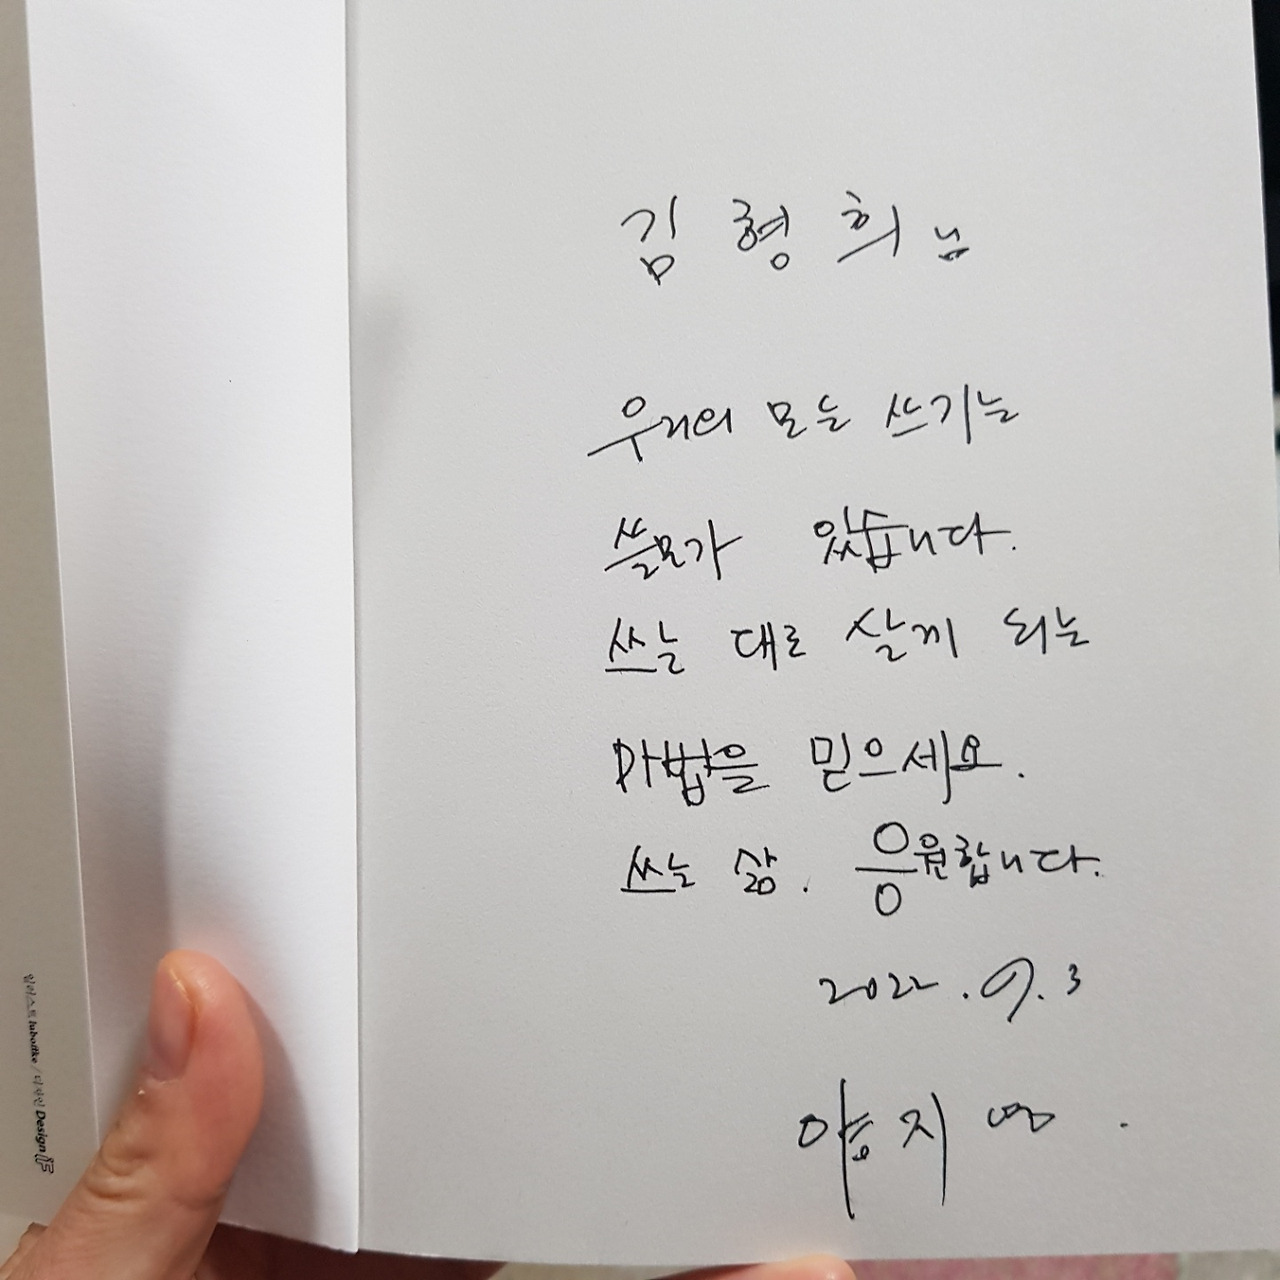 김형희 님
우리의 모든 쓰기는
쓸모가 있습니다.
쓰는 대로 살게 되는
마법을 믿으세요.
쓰는 삶. 응원합니다.
2022. 9. 3
양지영.
일러스트 / 디자인 Design